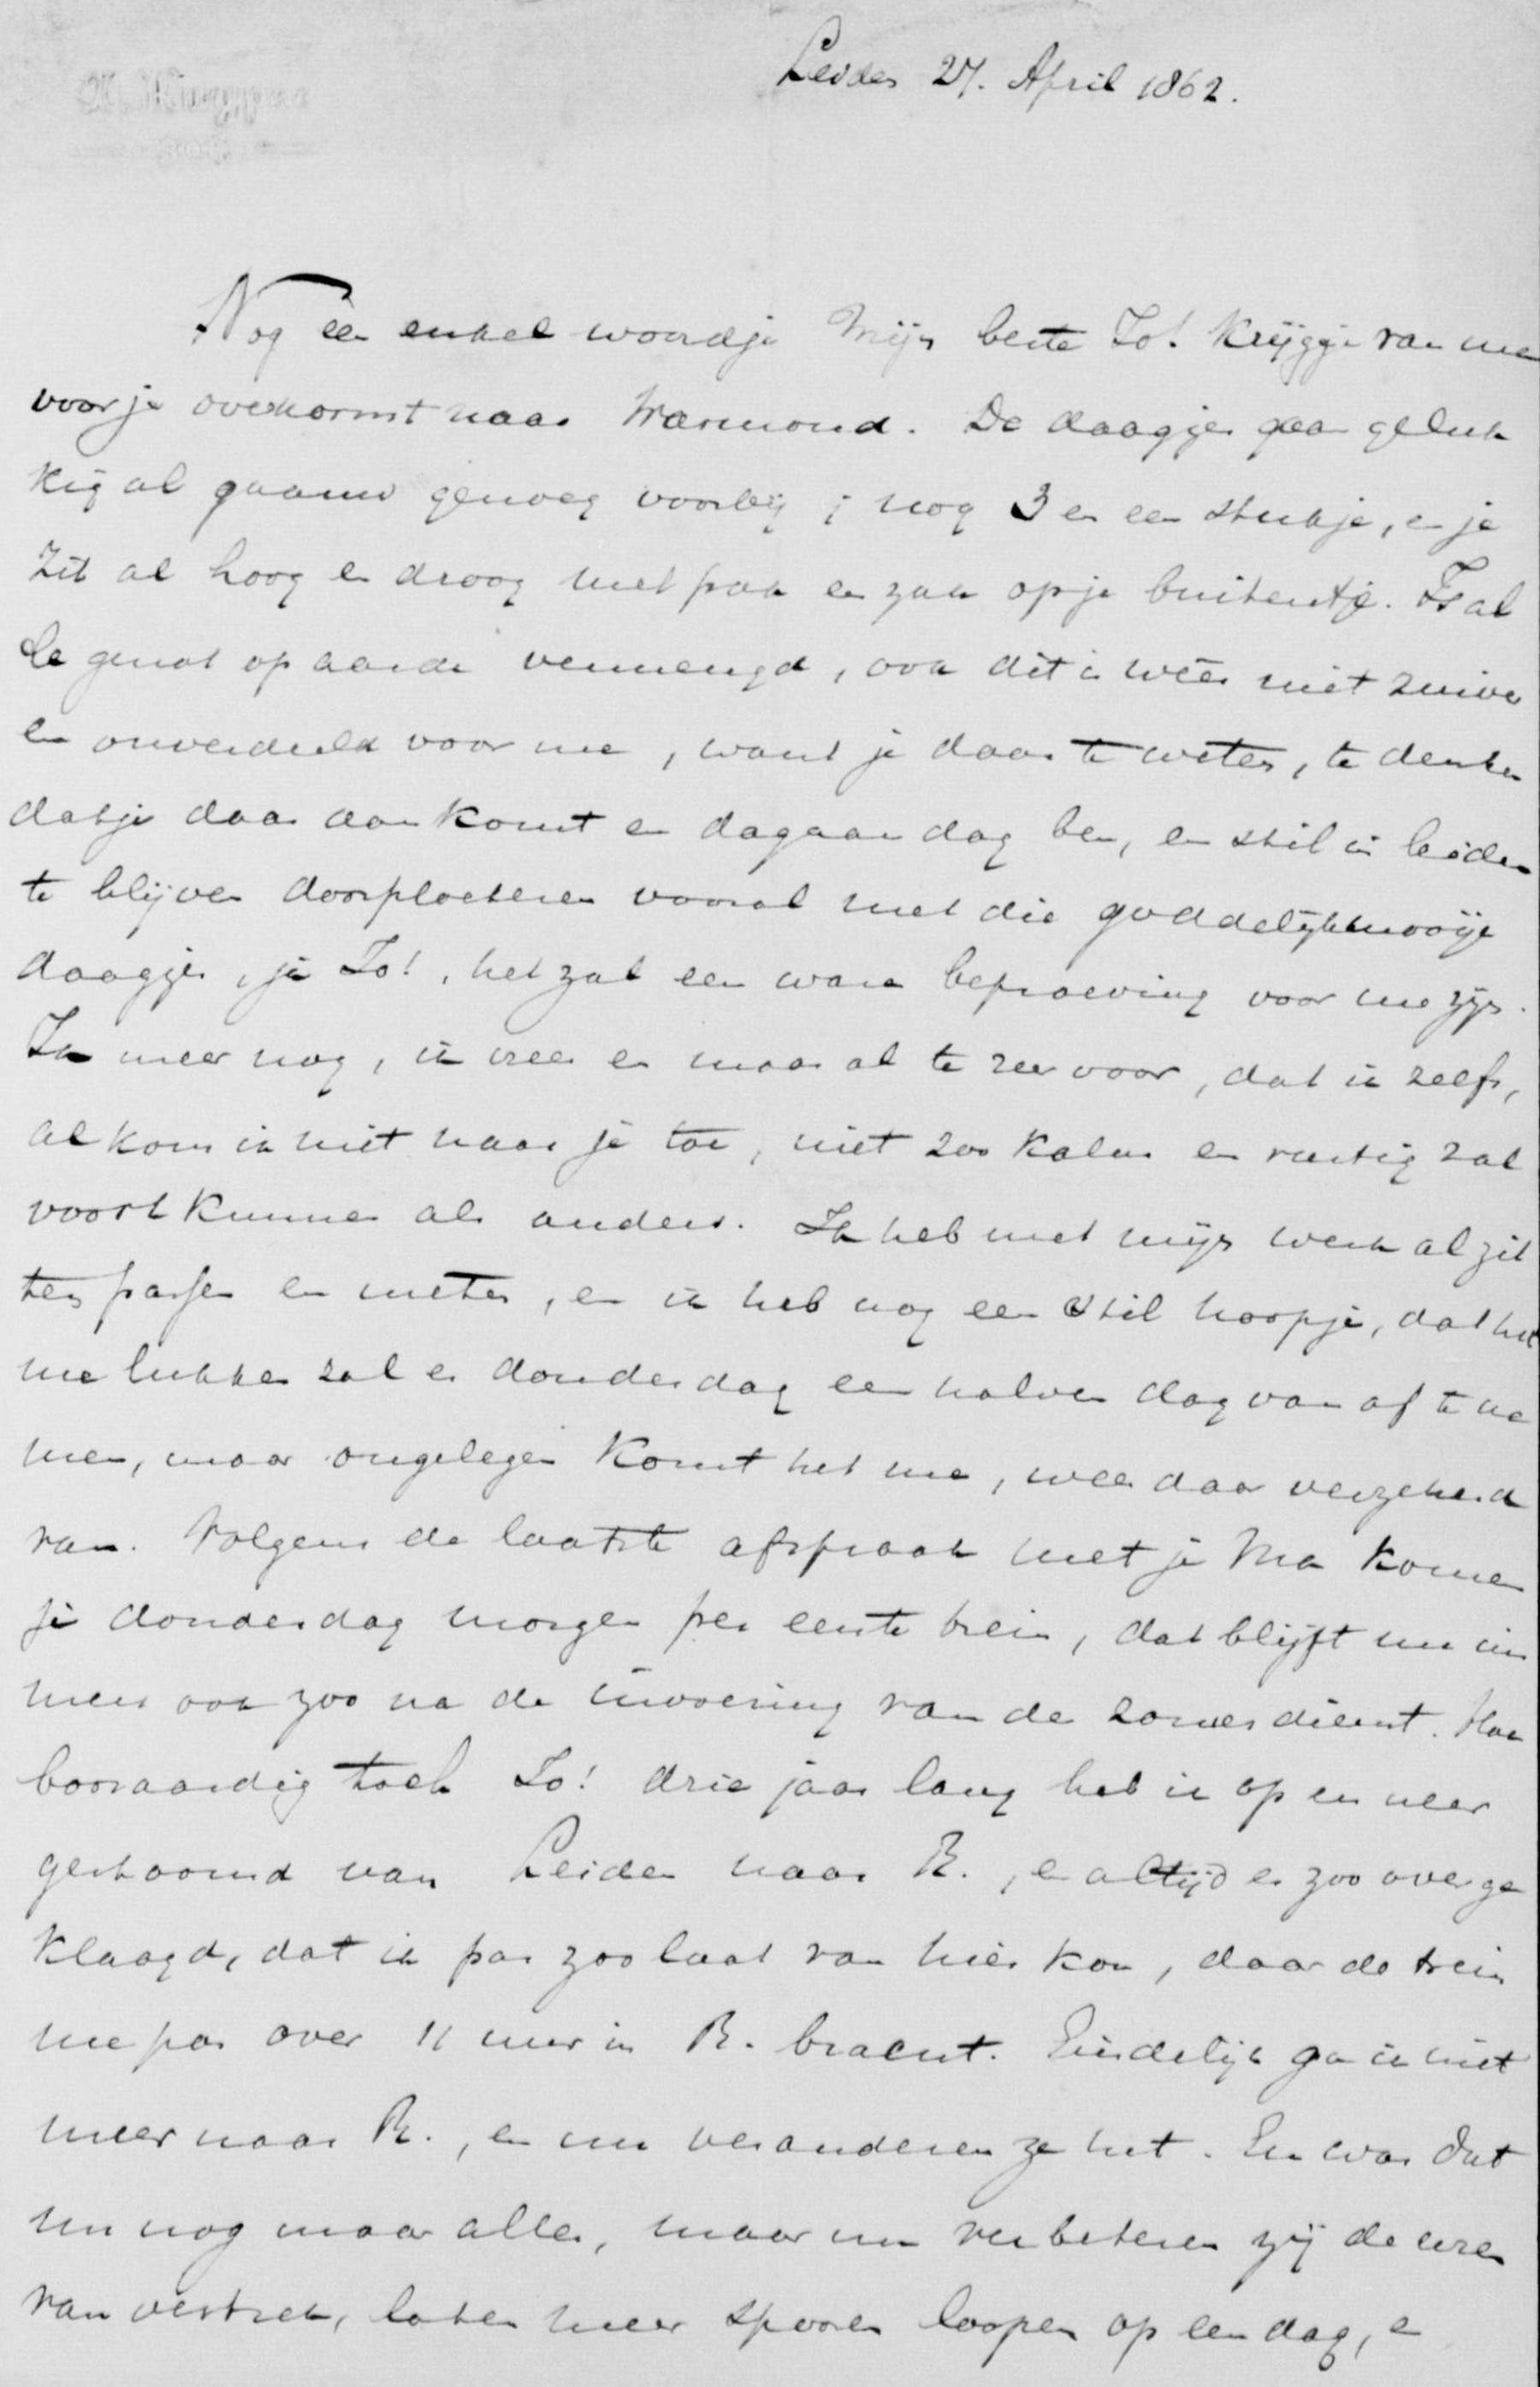 Leiden 27. April 1862.
Nog één enkel woordje Mijn beste Jo! Krijg je van me
voor je overkomst naar Warmond. De daagjes gaan geluk
kig al gaauw genoeg voorbij; nog 3 en een stukje, en je
zit al hoog en droog met pak en zak op je buitentje. Is al
le genot op aarde vermengd, ook dit is wêer niet zuiver
en onverdeeld voor me, want je daar te weten, te denken
dat je daar aankomt en dag aan dag ben, en stil in Leiden
te blijven doorploeteren vooral met die goddelijkmooije
daagjes, ja Jo!, het zal een ware beproeving voor me zijn.
Ja meer nog, ik vrees er maar al te zeer voor, dat ik zelfs,
al kom ik niet naar je toe, niet zoo kalm en rustig zal
voort kunnen als anders. Ik heb met mijn werk al zit
ten passen en meten, en ik heb nog een stil hoopje, dat het
me lukken zal er donderdag een halven dag van af te ne
men, maar ongelegen komt het me, wees daar verzekerd
van. Volgens de laatste afspraak met je Ma komen
je donderdag morgen per eerste trein, dat blijft nu im
mers ook zoo na de invoering van de zomerdienst. Hoe
boosaardig toch Jo! drie jaar lang heb ik op en neer
gestoomd van Leiden naar R., en altijd er zoo over ge
klaagd, dat ik pas zoo laat van hier kon, daar de trein
me pas over 11 uur in R. bracht. Eindelijk ga ik niet
meer naar R., en nu veranderen ze het. En was dat
nu nog maar alles, maar nu verbeteren zij de uren
van vertrek, laten meer sporen loopen op een dag, en